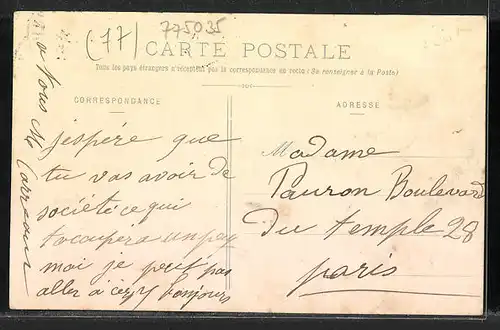 (17) 775035
CARTE POSTALE
Tous les pays étrangers n'acceptent pas la correspondance au recto (Se renseigner à la Poste)
CORRESPONDANCE
j'espère que
tu vas avoir de
société ce qui
tocoupera un peu
moi je peut pas
aller à bonjours
a tous M Carreau
ADRESSE
Madame
Pauron Boulevard
Du temple 28
paris